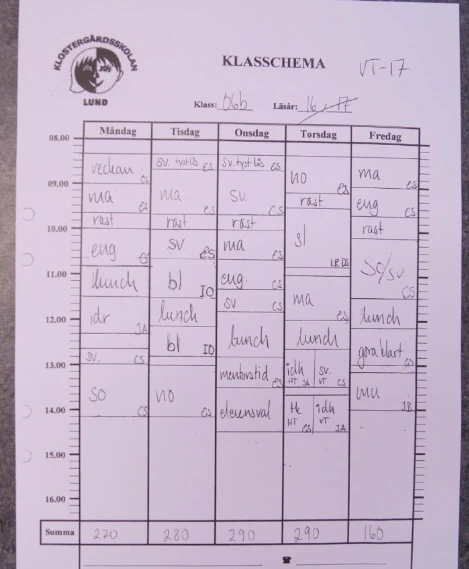 KLOSTERGÅRDSSKOLAN
LUND
KLASSCHEMA
VT-17
Klass: 06b Läsår: 16-17
Måndag Tisdag Onsdag Torsdag Fredag
08.00
09.00
10.00
11.00
12.00
13.00
14.00
15.00
16.00
veckan CS
ma ES
rast
eng ES
lunch
idr JA
sv. CS
so CS
sv. tyst läs ES
ma ES
rast
sv ES
bl IO
lunch
bl IO
no ES
sv. tyst läs ES
sv. CS
rast
ma ES
eng. CS
sv CS
lunch
mentorstid ES
elevensval
no ES
rast
sl LR DS
ma ES
lunch
idh HT JA
sv. VT CS
tk HT ES
idh VT JA
ma ES
eng CS
rast
so/sv CS
lunch
göra klart CS
mu JB
Summa 270 280 290 290 160